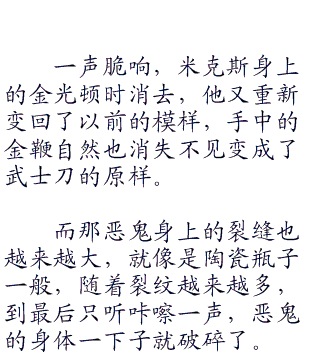 一声脆响，米克斯身上
的金光顿时消去，他又重新
变回了以前的模样，手中的
金鞭自然也消失不见变成了
武士刀的原样。
而那恶鬼身上的裂缝也
越来越大，就像是陶瓷瓶子
一般，随着裂纹越来越多，
到最后只听咔嚓一声，恶鬼
的身体一下子就破碎了。